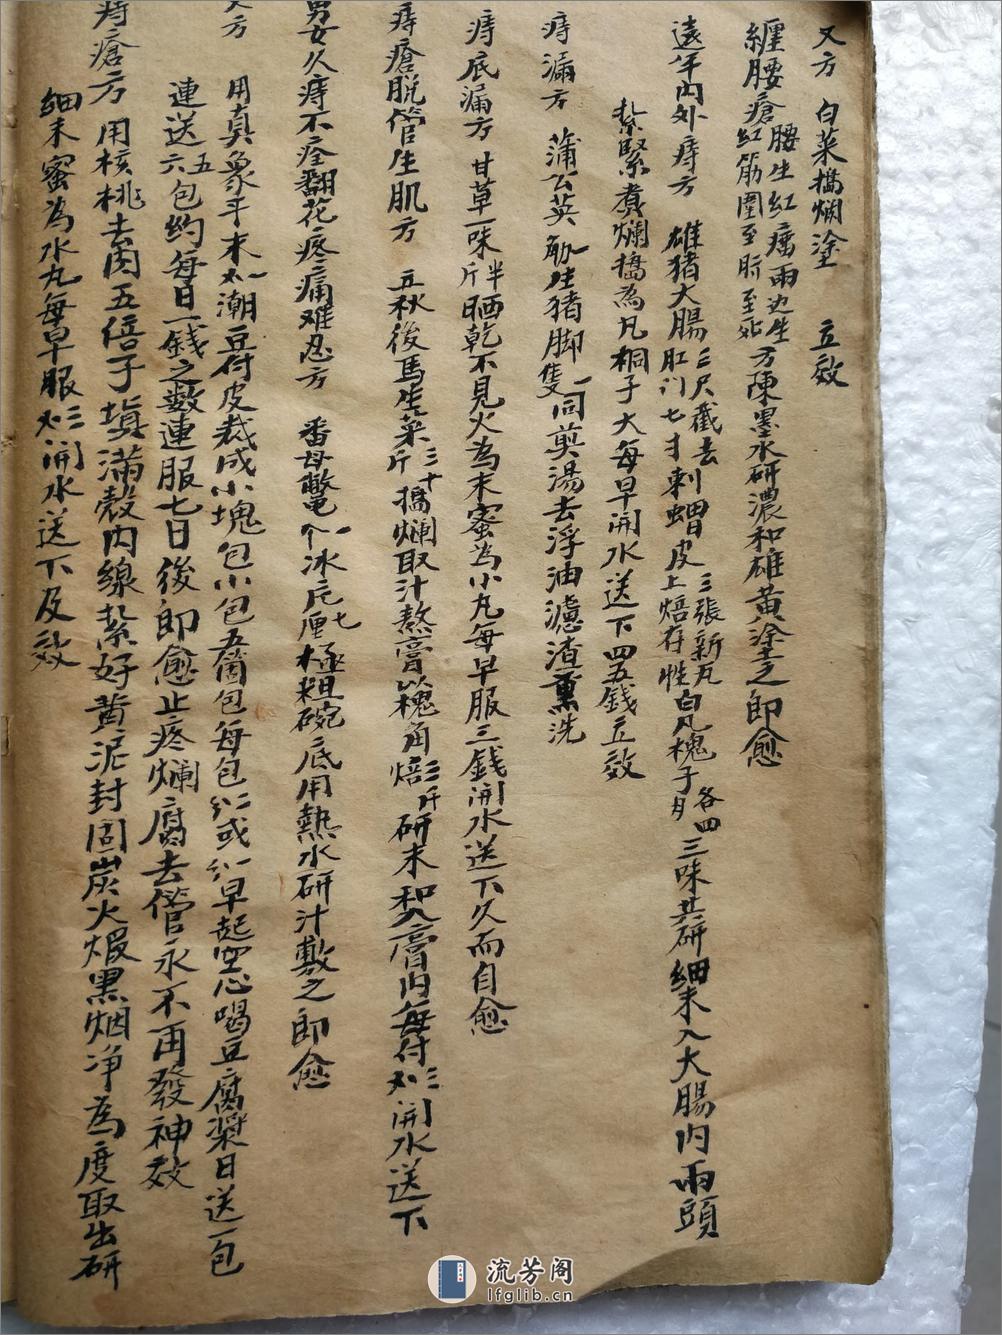 又方 白菜搗爛塗 立效
纏腰瘡 腰生紅瘰兩边生紅筋圍至臍至 方陳墨水研濃和雄黃塗之即愈
遠年內外痔方 雄猪大腸三尺截去肛门七寸刺蝟皮三張新瓦上焙存性白凡槐子各四三味共研細末入大腸內兩頭
紮緊煮爛搗為凡桐子大每早開水送下四五錢立效
痔漏方 蒲公英 猪脚一隻同煎湯去浮油濾渣薰洗
痔底漏方 甘草一味半斤晒乾不見火為末蜜為小丸每早服三錢開水送下久而自愈
痔瘡脫管生肌方 立秋後馬生菜三十斤搗爛取汁熬膏以槐角焙 斤研末和入膏內每付 開水送下
男女久痔不痊翻花疼痛难忍方 番母鱉一个冰片七厘極粗碗底用熱水研汁敷之即愈
又方 用真象牙末 潮豆付皮裁成小塊包小包五箇包每包 或 早起空心喝豆腐漿日送一包
連送五六包約每日一錢之數連服七日後即愈止疼爛腐去管永不再發神效
痔瘡方 用核桃去肉五倍子填滿殼內線紮好黄泥封固炭火煅黑烟净為度取出研
細末蜜為水丸每早服 開水送下及效
流芳阁
lfglib.cn